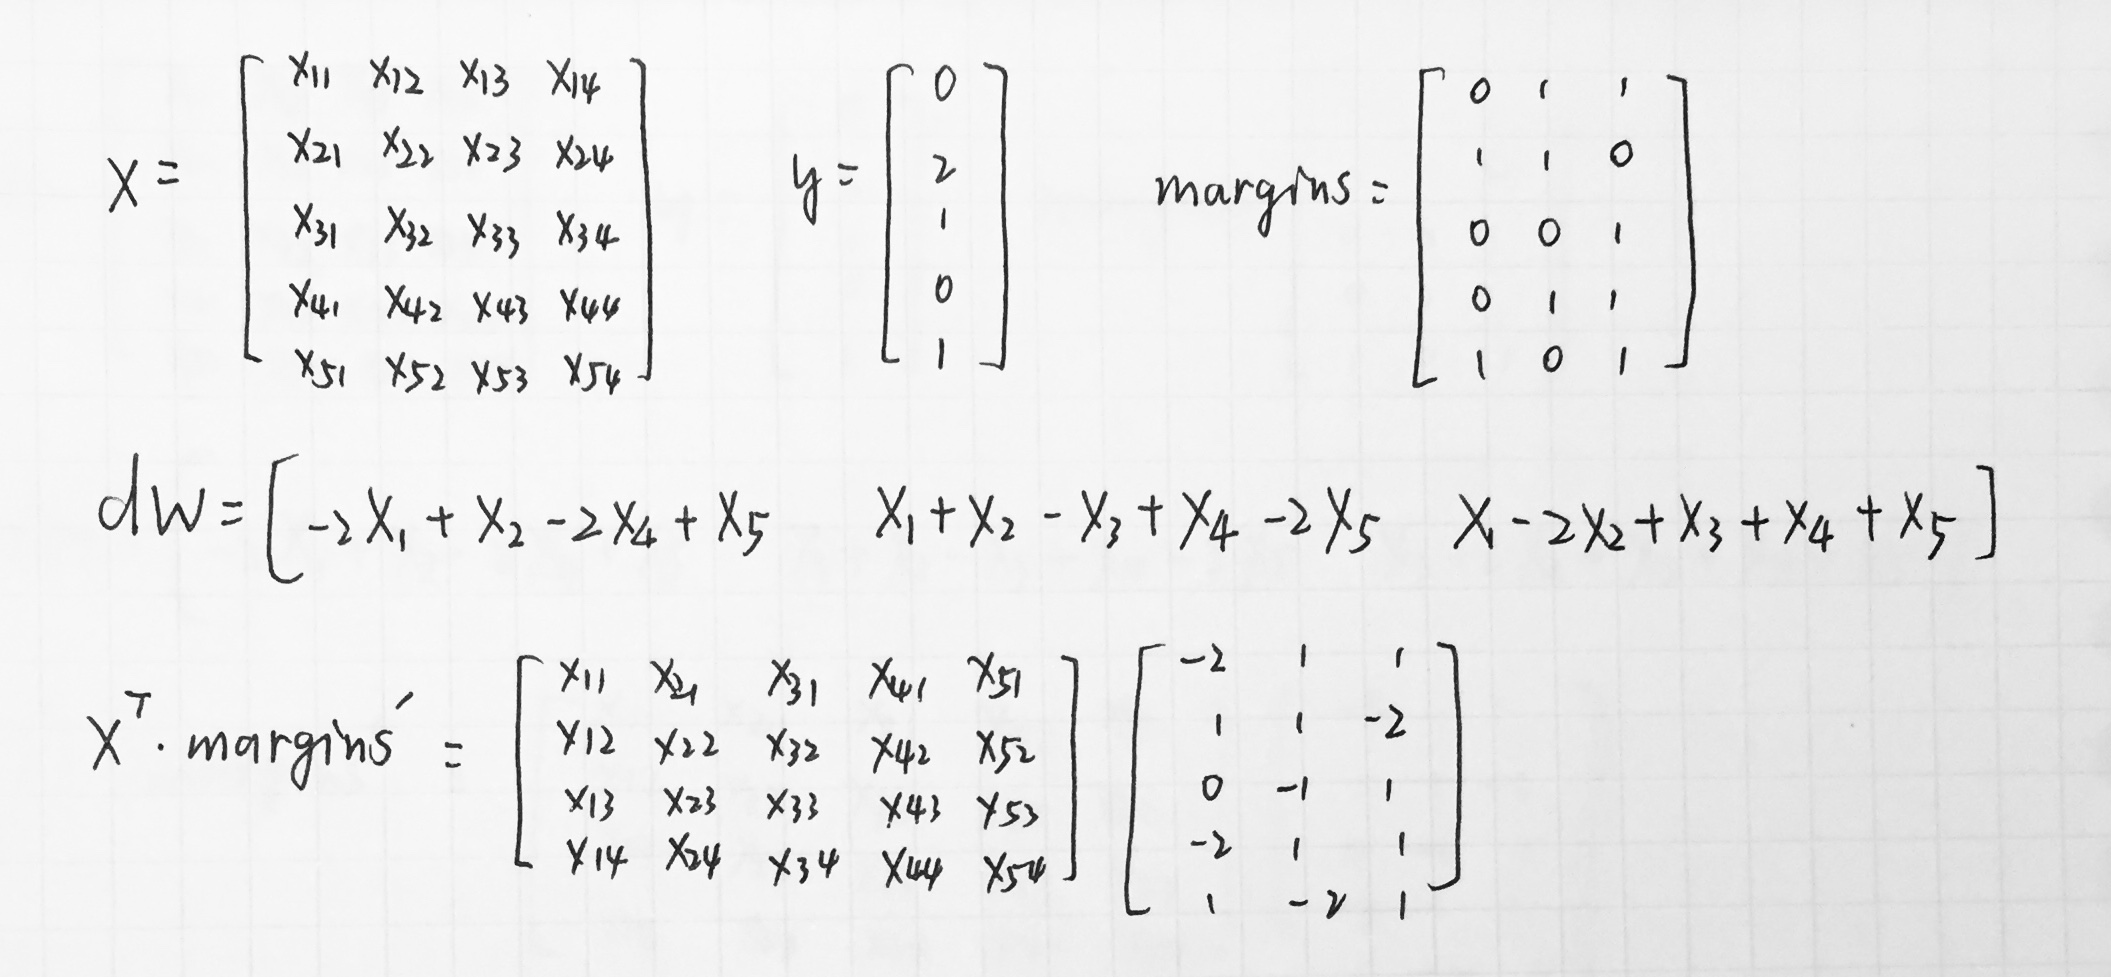 X = [ x11 x12 x13 x14 ; x21 x22 x23 x24 ; x31 x32 x33 x34 ; x41 x42 x43 x44 ; x51 x52 x53 x54 ]
y = [ 0 ; 2 ; 1 ; 0 ; 1 ]
margins = [ 0 1 1 ; 1 1 0 ; 0 0 1 ; 0 1 1 ; 1 0 1 ]
dW = [ -2X1 + X2 - 2X4 + X5   X1 + X2 - X3 + X4 - 2X5   X1 - 2X2 + X3 + X4 + X5 ]
X^T · margins' = [ x11 x21 x31 x41 x51 ; x12 x22 x32 x42 x52 ; x13 x23 x33 x43 x53 ; x14 x24 x34 x44 x54 ] [ -2 1 1 ; 1 1 -2 ; 0 -1 1 ; -2 1 1 ; 1 -2 1 ]